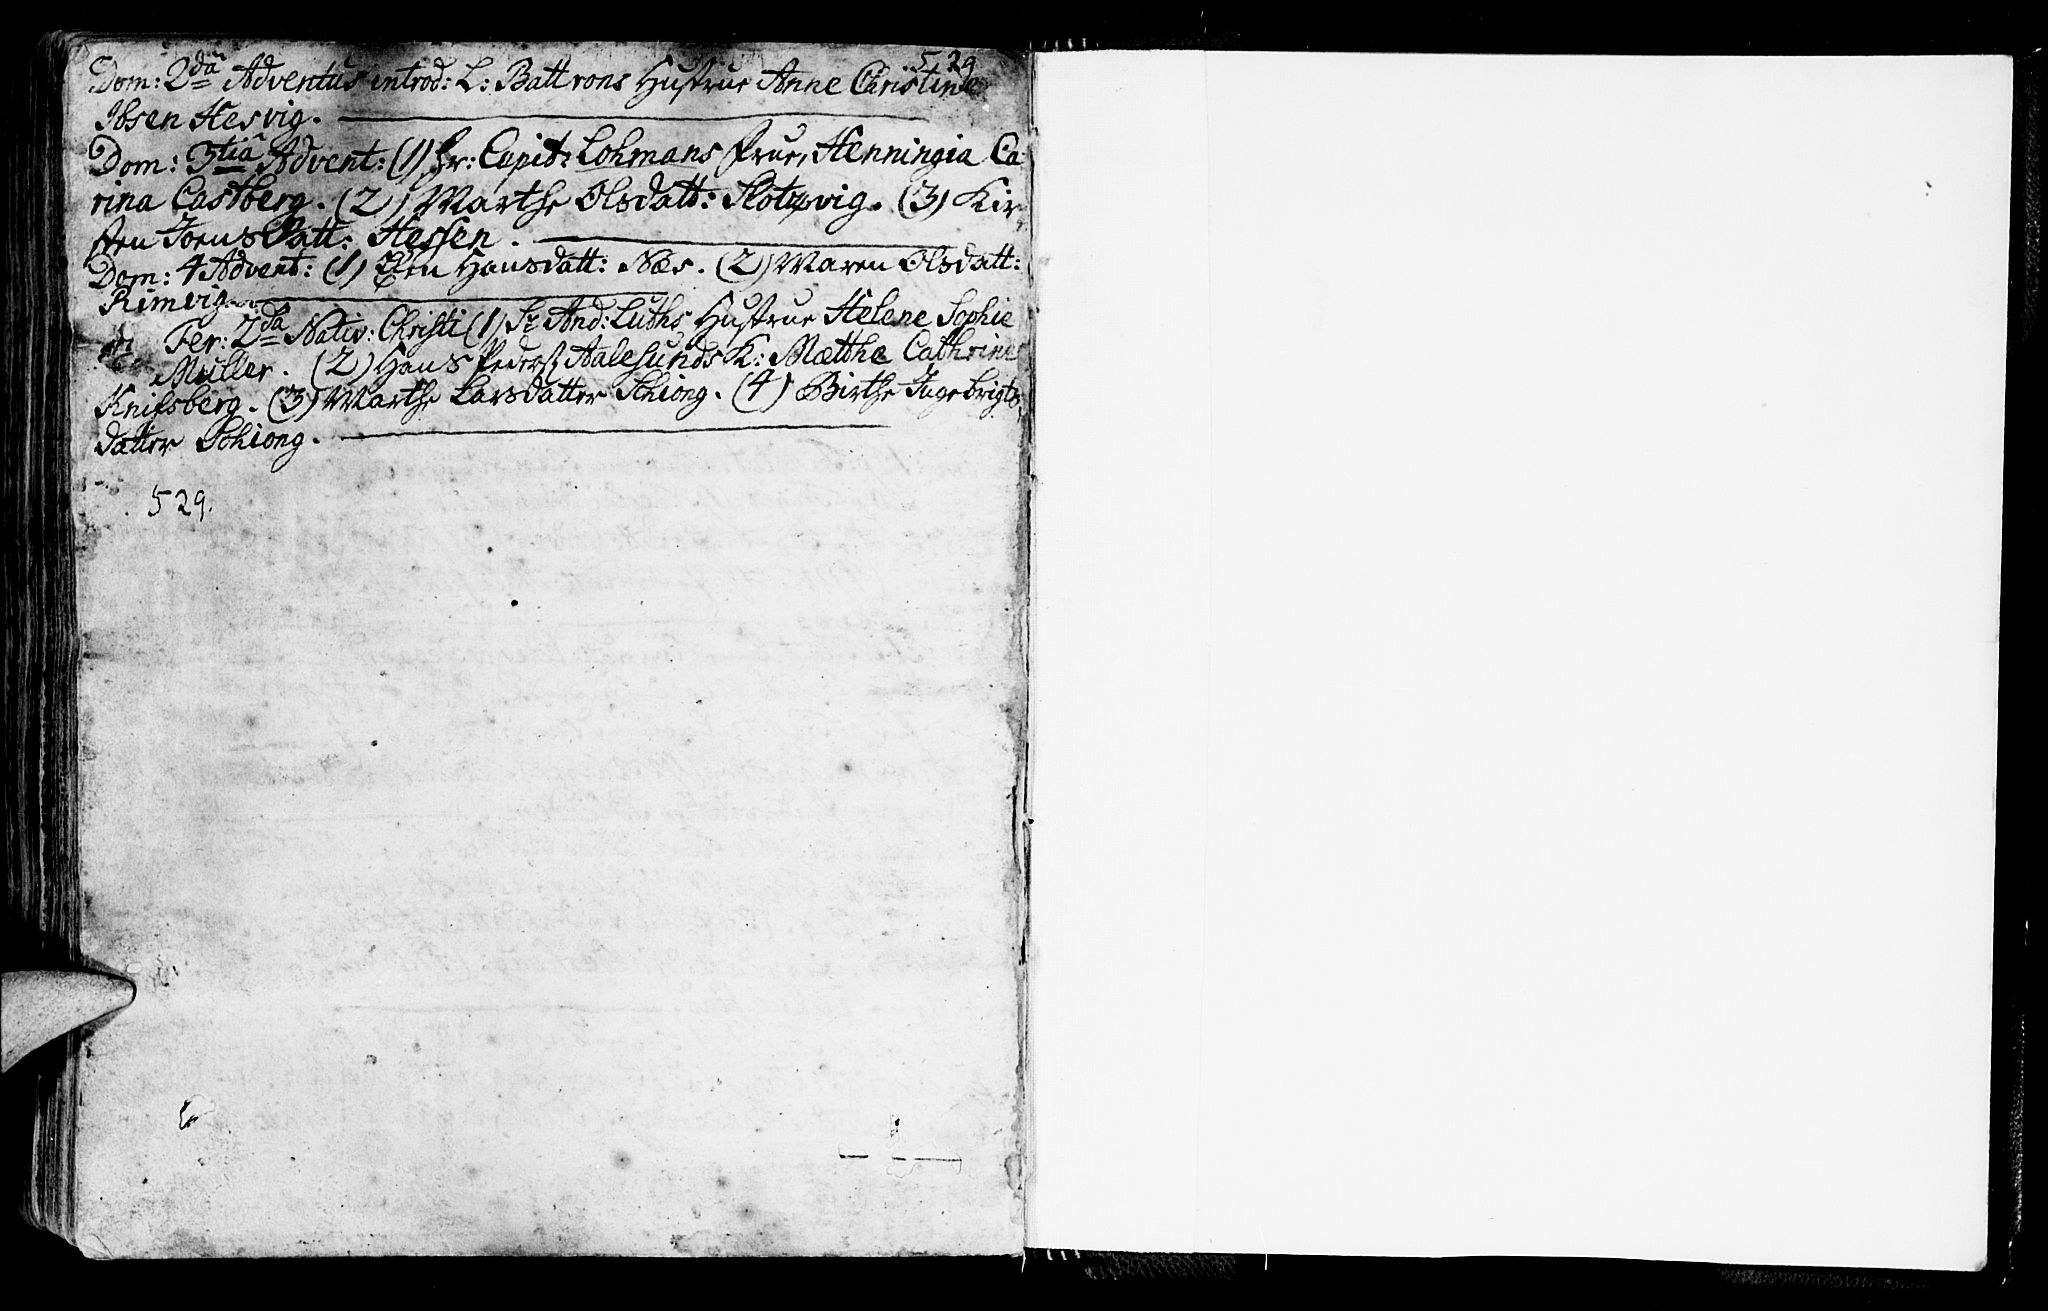 529
Dom: 2da Adventus introd: L: Battrons Hustrue Anne Christine
Ibsen Hesvig.
Dom: 3tia Advent: (1) Hr: Capit: Lohmans Frue, Henningia Ca-
rina Castberg. (2) Marthe Olsdatt: Slotzvig. (3) Kir-
sten Joens Datt: Hessen.
Dom: 4 Advent: (1) Elen Hansdatt: Næs. (2) Maren Olsdatt:
Rimvig.
Fer: 2da Nativ: Christi (1) Sr And: Luths Hustrue Helene Sophie
Müller. (2) Hans Peders: Aalesunds K: Mætthe Cathrine
Knifsberg. (3) Marthe Larsdatter Schiong. (4) Birthe Ingebrigts
datter Schiong.
529.